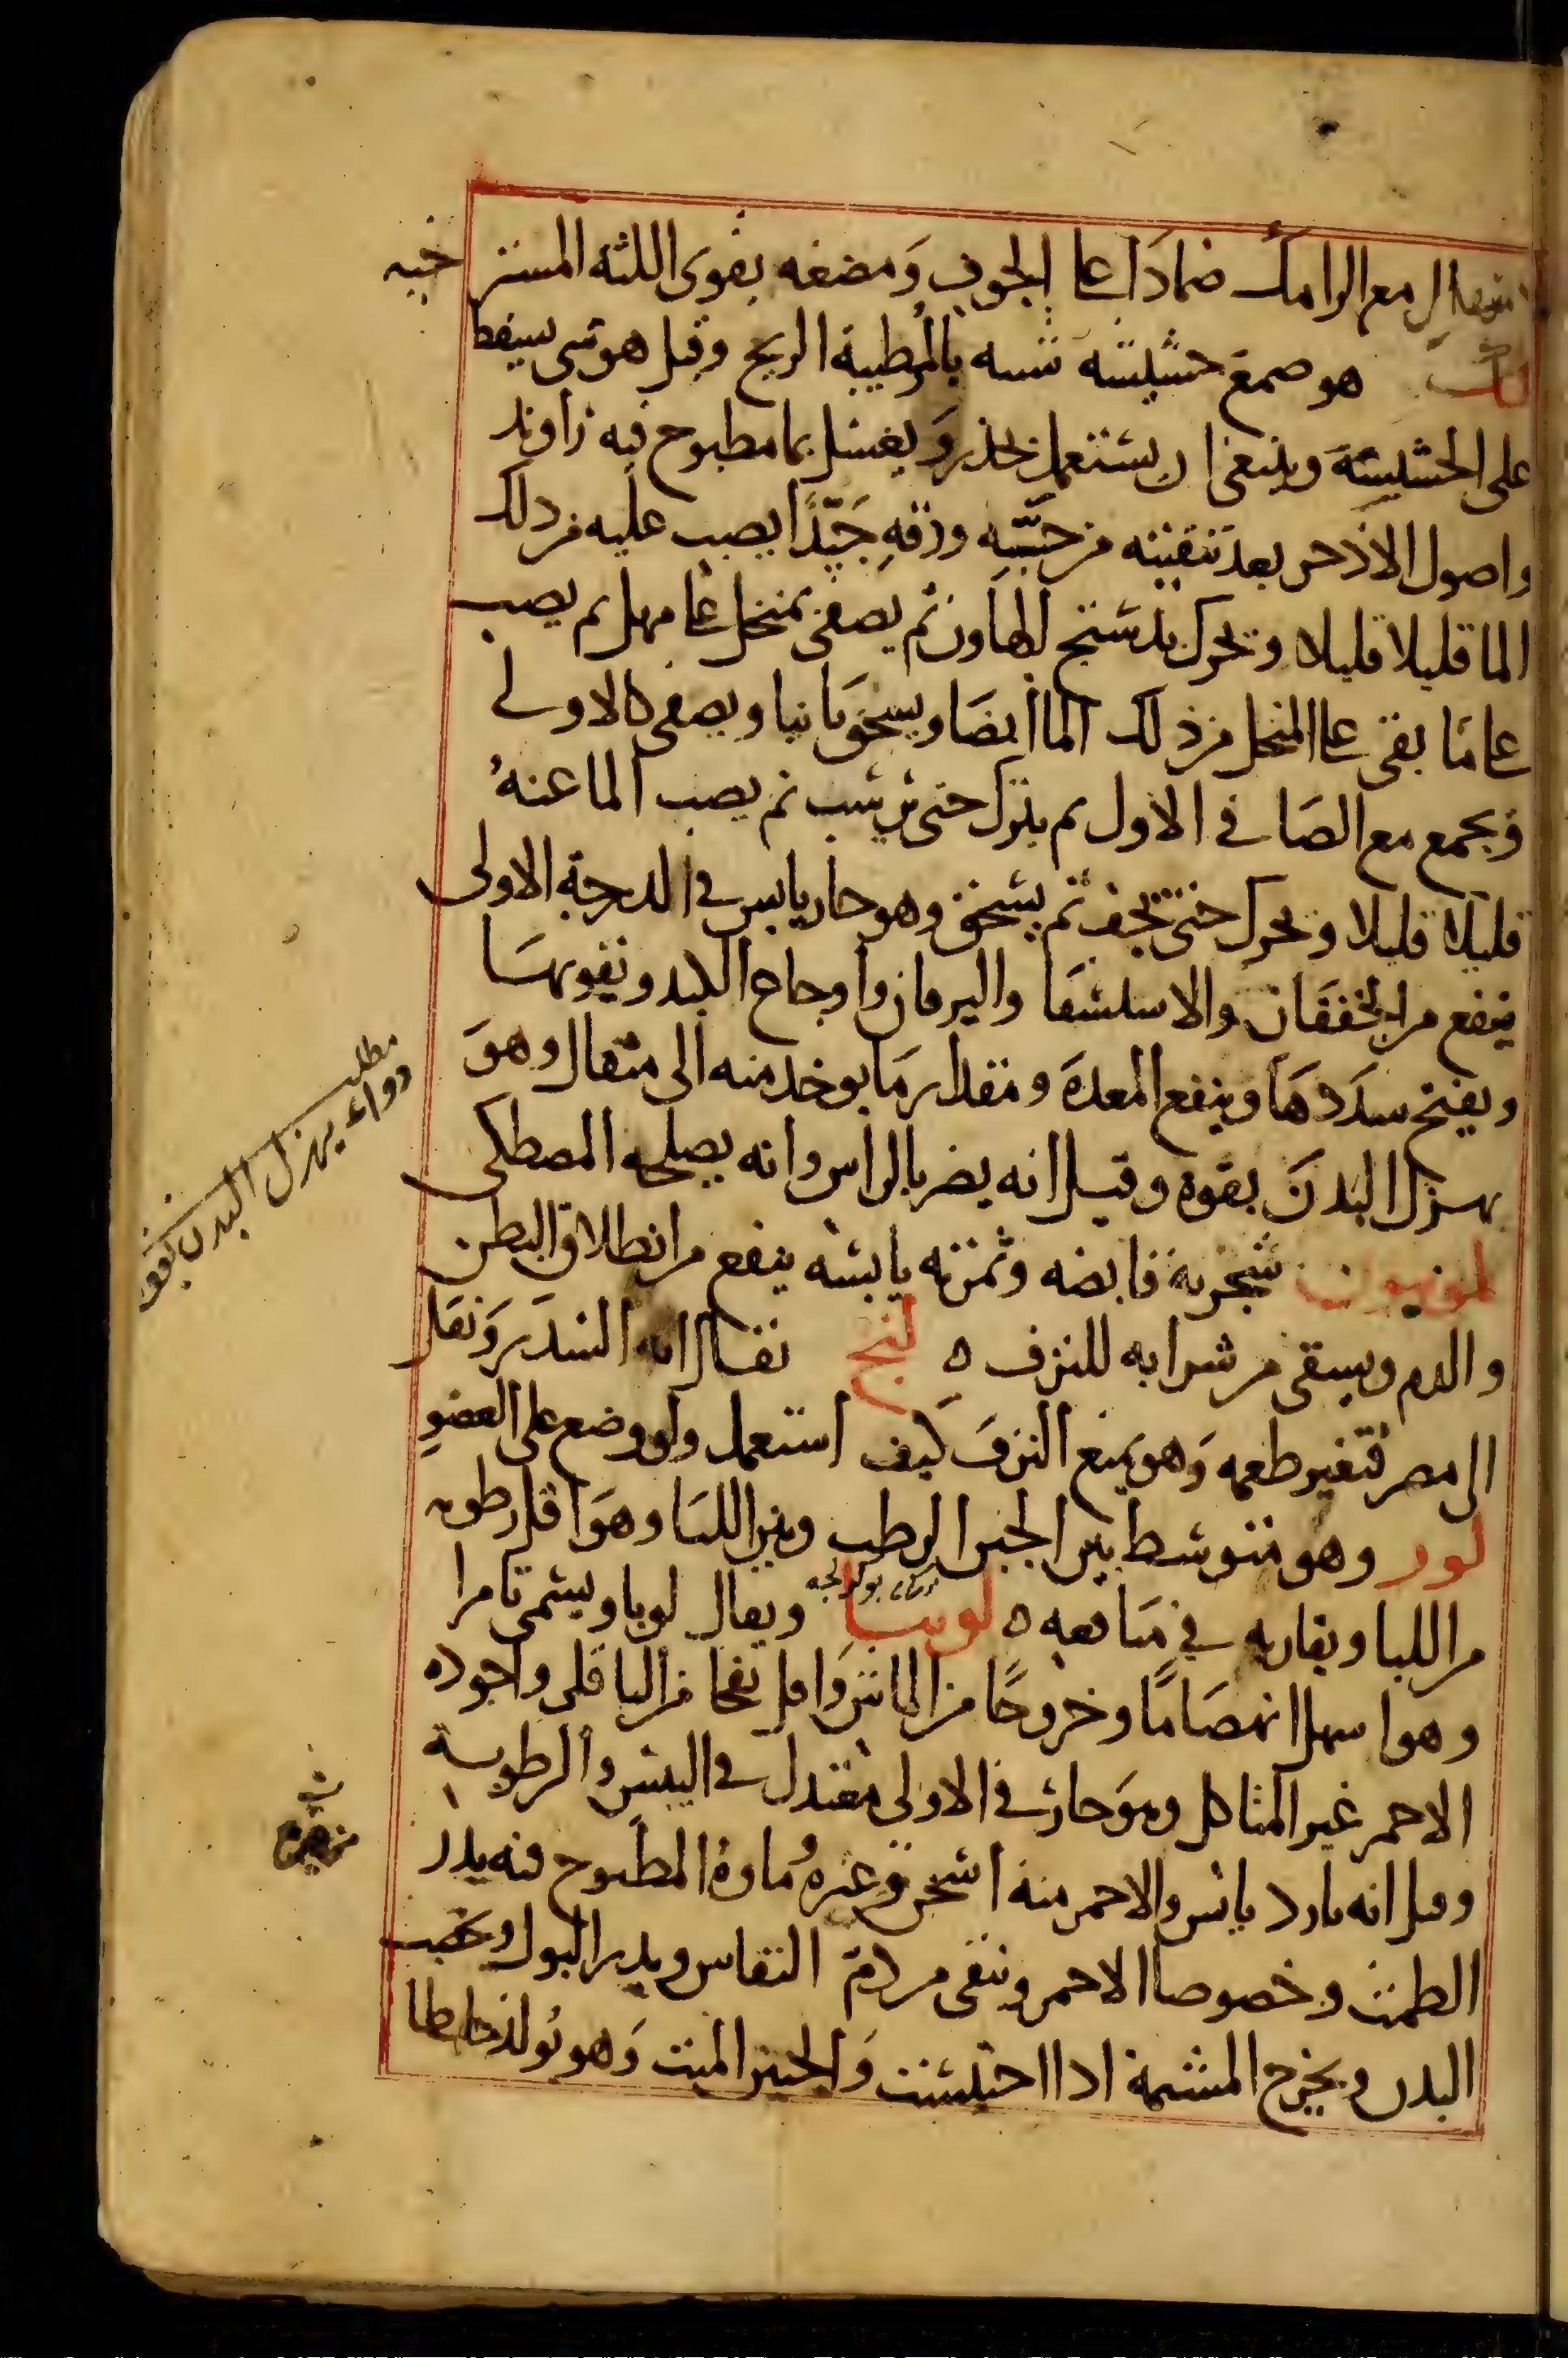 الاسهال مع الرامك ضمادا على الجوف ومضغه يقوى اللثه المسترخيه
لك هو صمغ حشيشه شبيه بالمر طيبة الريح وقيل هو شى يسقط
على الحشيشه وينبغى ان يستعمل بحذر ويغسل بما مطبوخ فيه زاوند
واصول الاذخر بعد تنقيته من خشبه ودقه جيدا يصب عليه من ذلك
الما قليلا قليلا ويحرك بدستج الهاون ثم يصفى بمنخل على مهل ثم يصب
على ما بقى على المنخل من ذلك الما ايضا ويسحق ثانيا ويصفى كالاولى
ويجمع مع الصافى الاول ثم يترك حتى يرسب ثم يصب الما عنه
قليلا قليلا ويحرك حتى يجف ثم يسحق وهو حار يابس فى الدرجة الاولى
ينفع من الخفقان والاستسقا واليرقان واوجاع الكبد ويقويها
ويفتح سددها وينفع المعده ومقدار ما يوخد منه الى مثقال وهو
يهزل البدن بقوه وقيل انه يضر بالراس وانه يصلحه المصطكى
شجرية قابضه وثمرته يابسه ينفع من انطلاق البطن
والدم ويسقى من شرابه للنزف ه لنج يقال انه السدر ونقل
الى مصر فتغير طعمه وهو يمنع النزف كيف استعمل ولو وضع على العضو
لور وهو متوسط بين الجبن الرطب وبين اللبا وهو اقل رطوبه
من اللبا ويقاربه فى منافعه ه لوبيا ويقال لوبا ويسمى ثامرا
وهو اسهل انهضاما وخروجا من الماش واقل نفخا من الباقلى واجوده
الاحمر غير المتاكل وهو حار فى الاولى معتدل فى اليبس والرطوبة
وقيل انه بارد يابس والاحمر منه اسخن من غيره وماوه المطبوخ فيه يدر
الطمث وخصوصا الاحمر وينقى من دم النفاس ويدر البول ويخصب
البدن ويخرج المشيمة اذا احتبست والجنين الميت وهو يولد خلطا
مطلب
دواء يهزل البدن بقوه